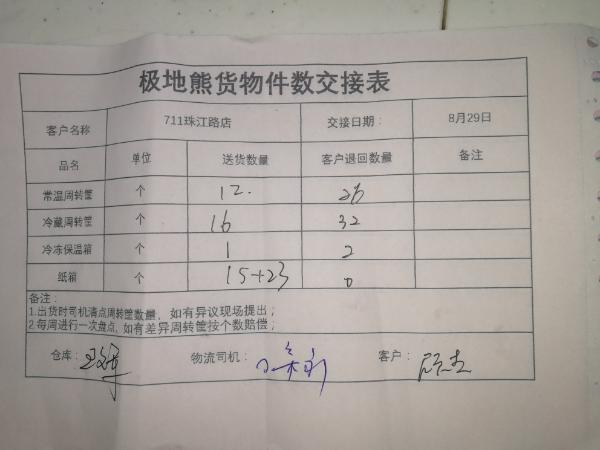 极地熊货物件数交接表
客户名称 711珠江路店 交接日期： 8月29日
品名 单位 送货数量 客户退回数量 备注
常温周转筐 个 12. 26
冷藏周转筐 个 16 32
冷冻保温箱 个 1 2
纸箱 个 15+23 0
备注：
1.出货时司机清点周转筐数量，如有异议现场提出；
2.每周进行一次盘点，如有差异周转筐按个数赔偿；
仓库： 物流司机： 客户：